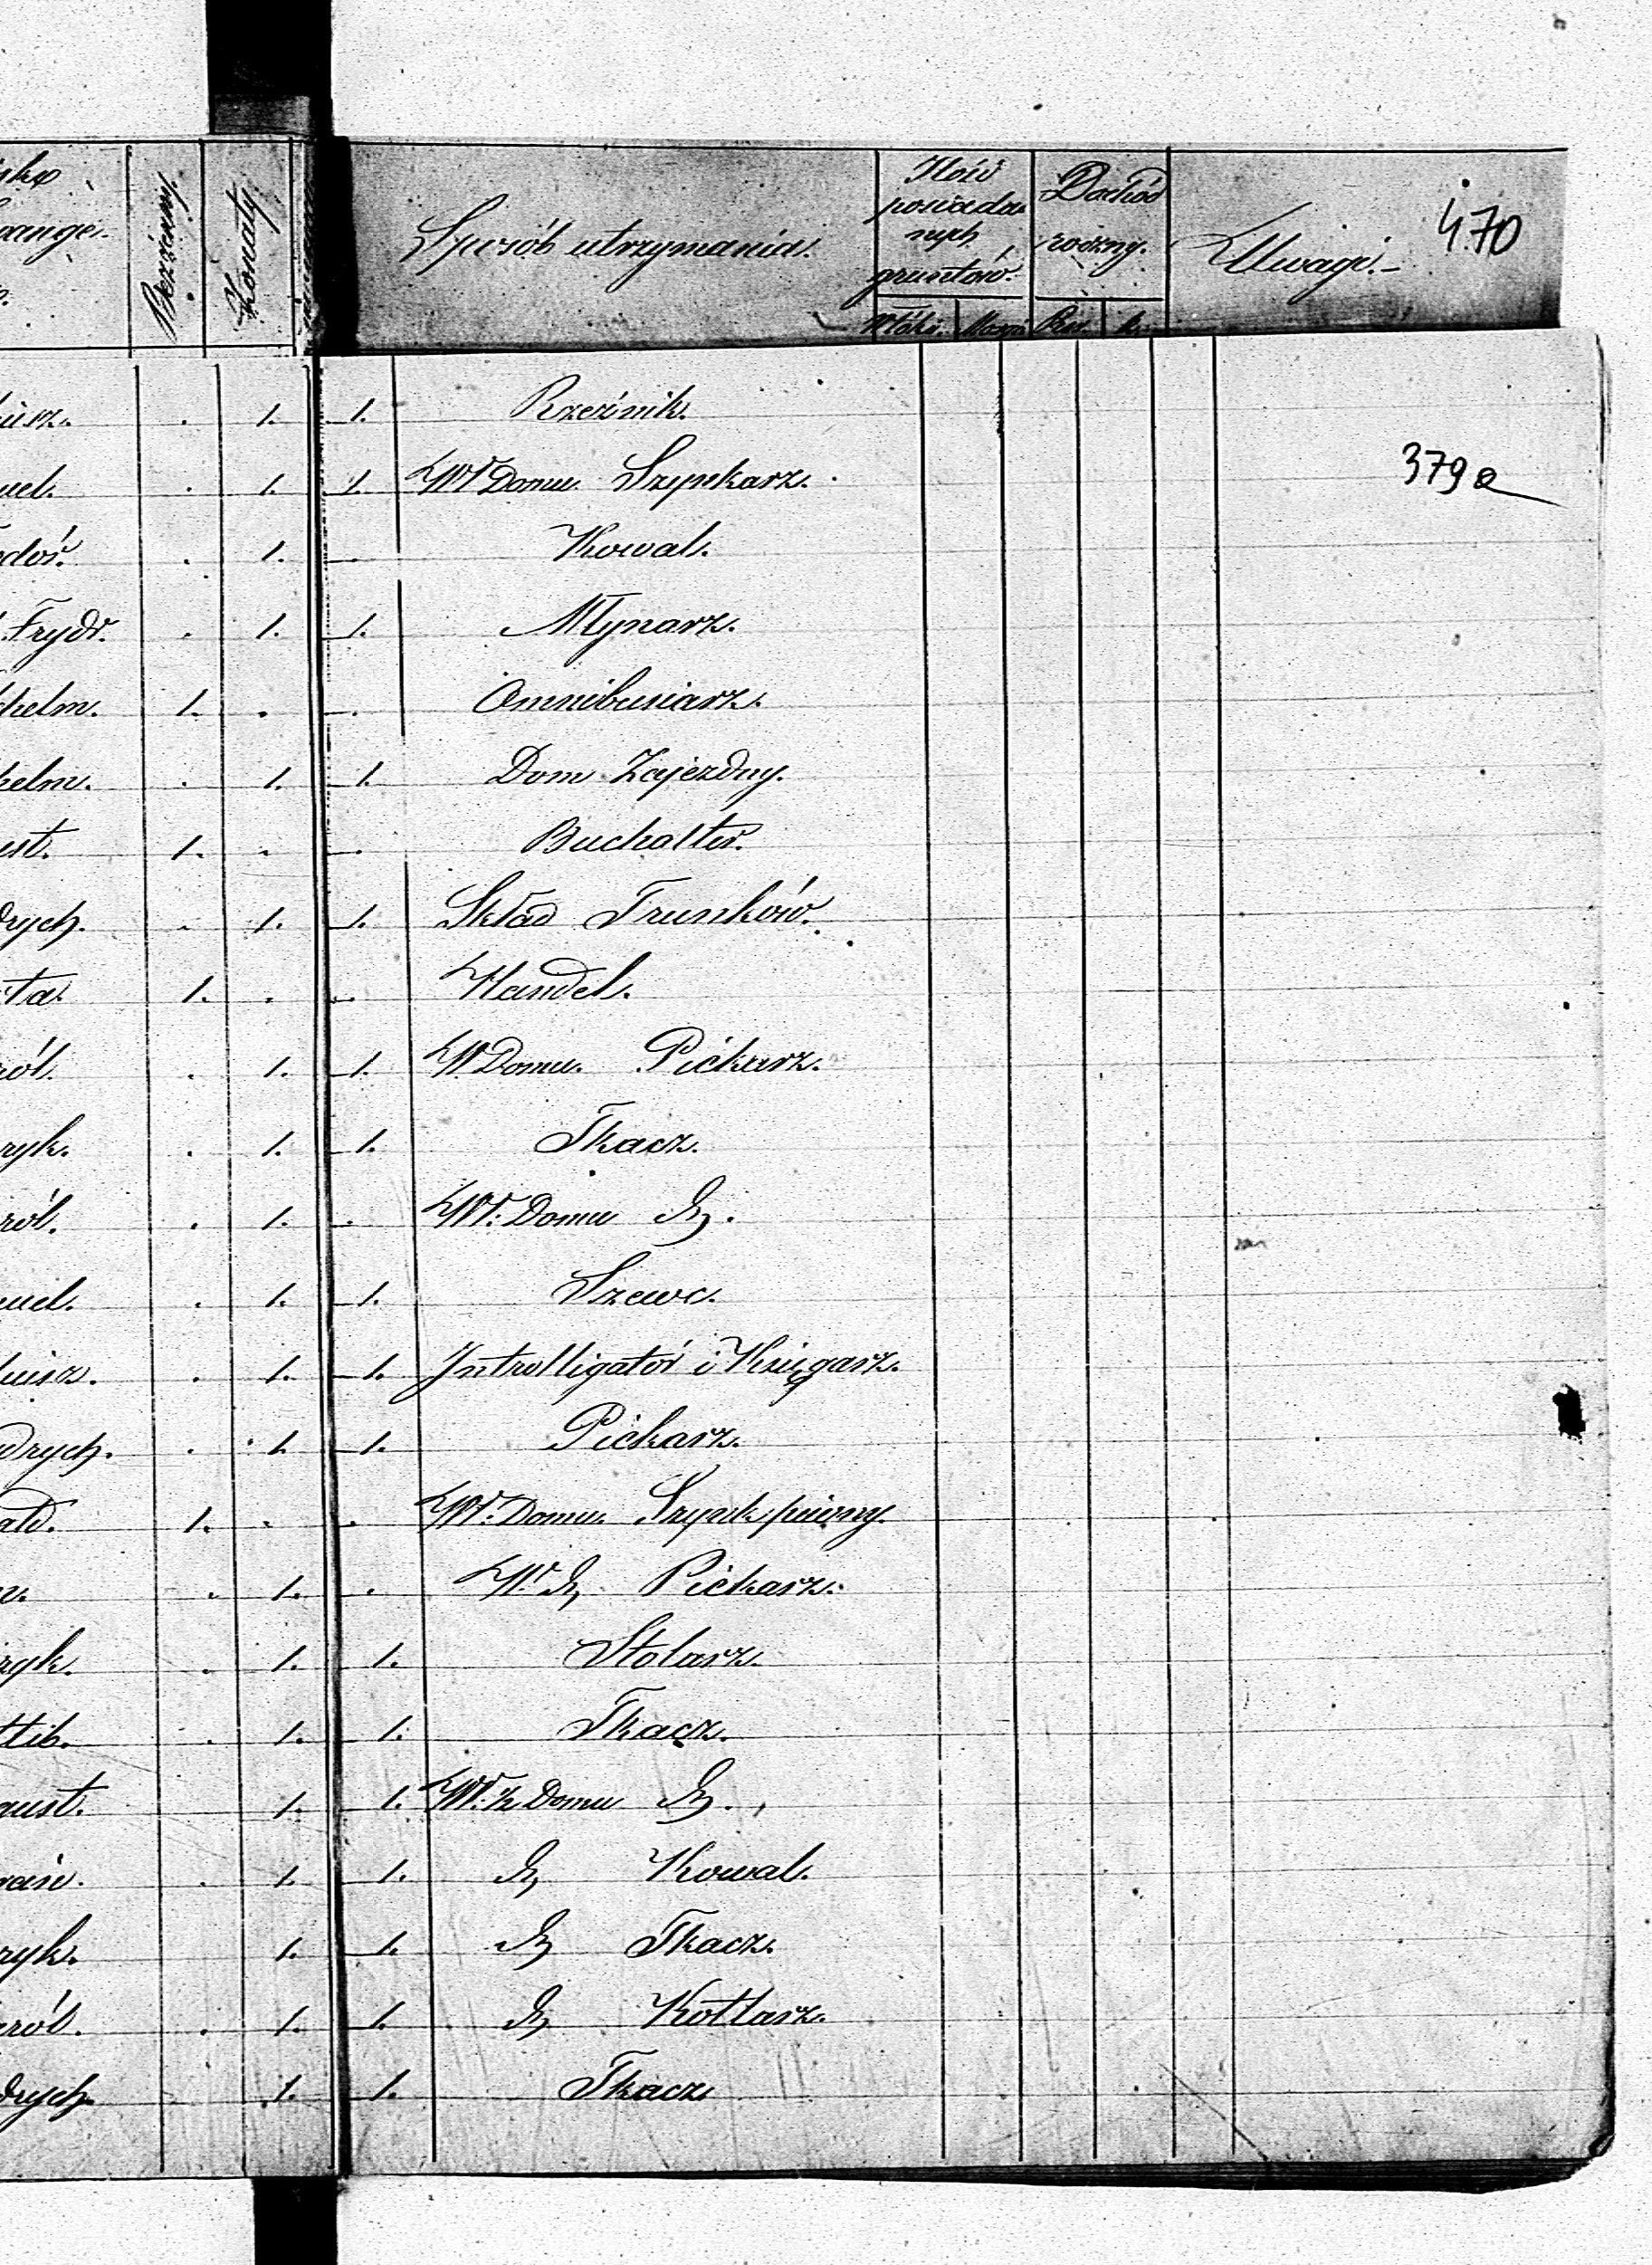 Bezżenny. Żonaty Sposób utrzymania. Ilość posiadanych gruntów. Dochód roczny. Uwagi.- 470
Włóki. Morgi Rsr. k.
usz. . 1. 1. Rzeźnik.
uel. . 1. 1. Wł Domu. Szynkarz. 379a
dor. . 1. . Kowal.
Frydr. . 1. 1. Młynarz.
helm. 1. . . Omnibusiarz.
helm. . 1. 1. Dom Zajezdny.
ust. 1. . . Buchalter.
drych. . 1. 1. Skład Trunków.
ta. 1. . . Handel.
ról. . 1. 1. W. Domu. Piekarz.
ryk. . 1. 1. Tkacz.
ról. . 1. . Wł: Domu
uel. . 1. 1. Szewc.
usz. . 1. 1. Introlligator i Księgarz.
drych. . 1. 1. Piekarz.
ald. 1. . . Wł. Domu. Szynk piwny.
. 1. . Wł. Piekarz.
ryk. . 1. 1. Stolarz.
tlib. . 1. 1. Tkacz.
gust. 1. 1. Wł. ½ Domu
. 1. 1. Kowal.
ryk. 1. 1. Tkacz.
ról. . 1. 1. Kotlarz.
drych. 1. 1. Tkacz